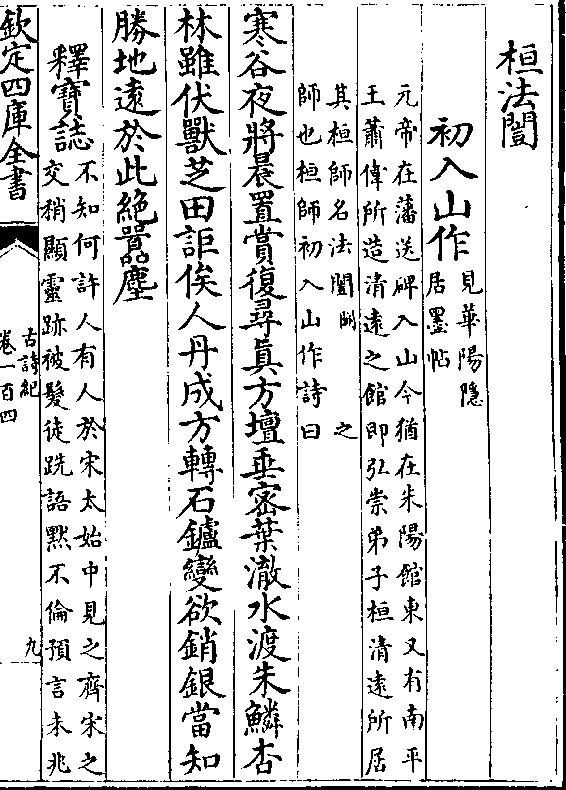 桓法闓
初入山作
見華陽隱
居墨帖
元帝在藩送碑入山今猶在朱陽館東又有南平
王蕭偉所造清遠之館即弘崇弟子桓清遠所居
其桓師名法闓 之
師也桓師初入山作詩曰
寒谷夜將晨置賞復尋真方壇垂密葉澈水渡朱鱗杏
林雖伏獸芝田詎俟人丹成方轉石鑪變欲銷銀當知
勝地遠於此絶囂塵
釋寶誌
不知何許人有人於宋太始中見之齊宋之
交稍顯靈跡被髮徒跣語默不倫預言未兆
欽定四庫全書
古詩紀
卷一百四
九